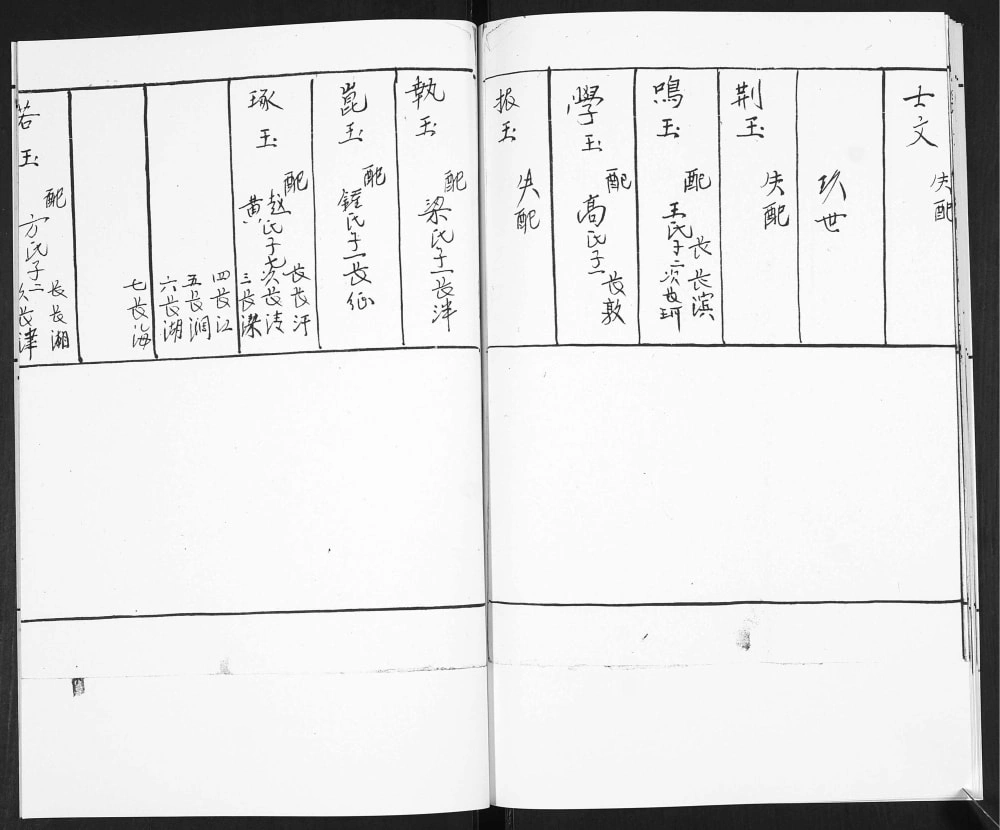 士文
失配
玖世
荆玉
失配
鳴玉
配王氏子二
长長滨
次長珂
學玉
配高氏子一
長敦
振玉
失配
執玉
配梁氏子一長泮
崑玉
配鍾氏子一長征
琢玉
配赵氏子七
黄
长長汗
次長清
三長梁
四長江
五長润
六長湖
七長海
若玉
配方氏子二
长長湘
次長津